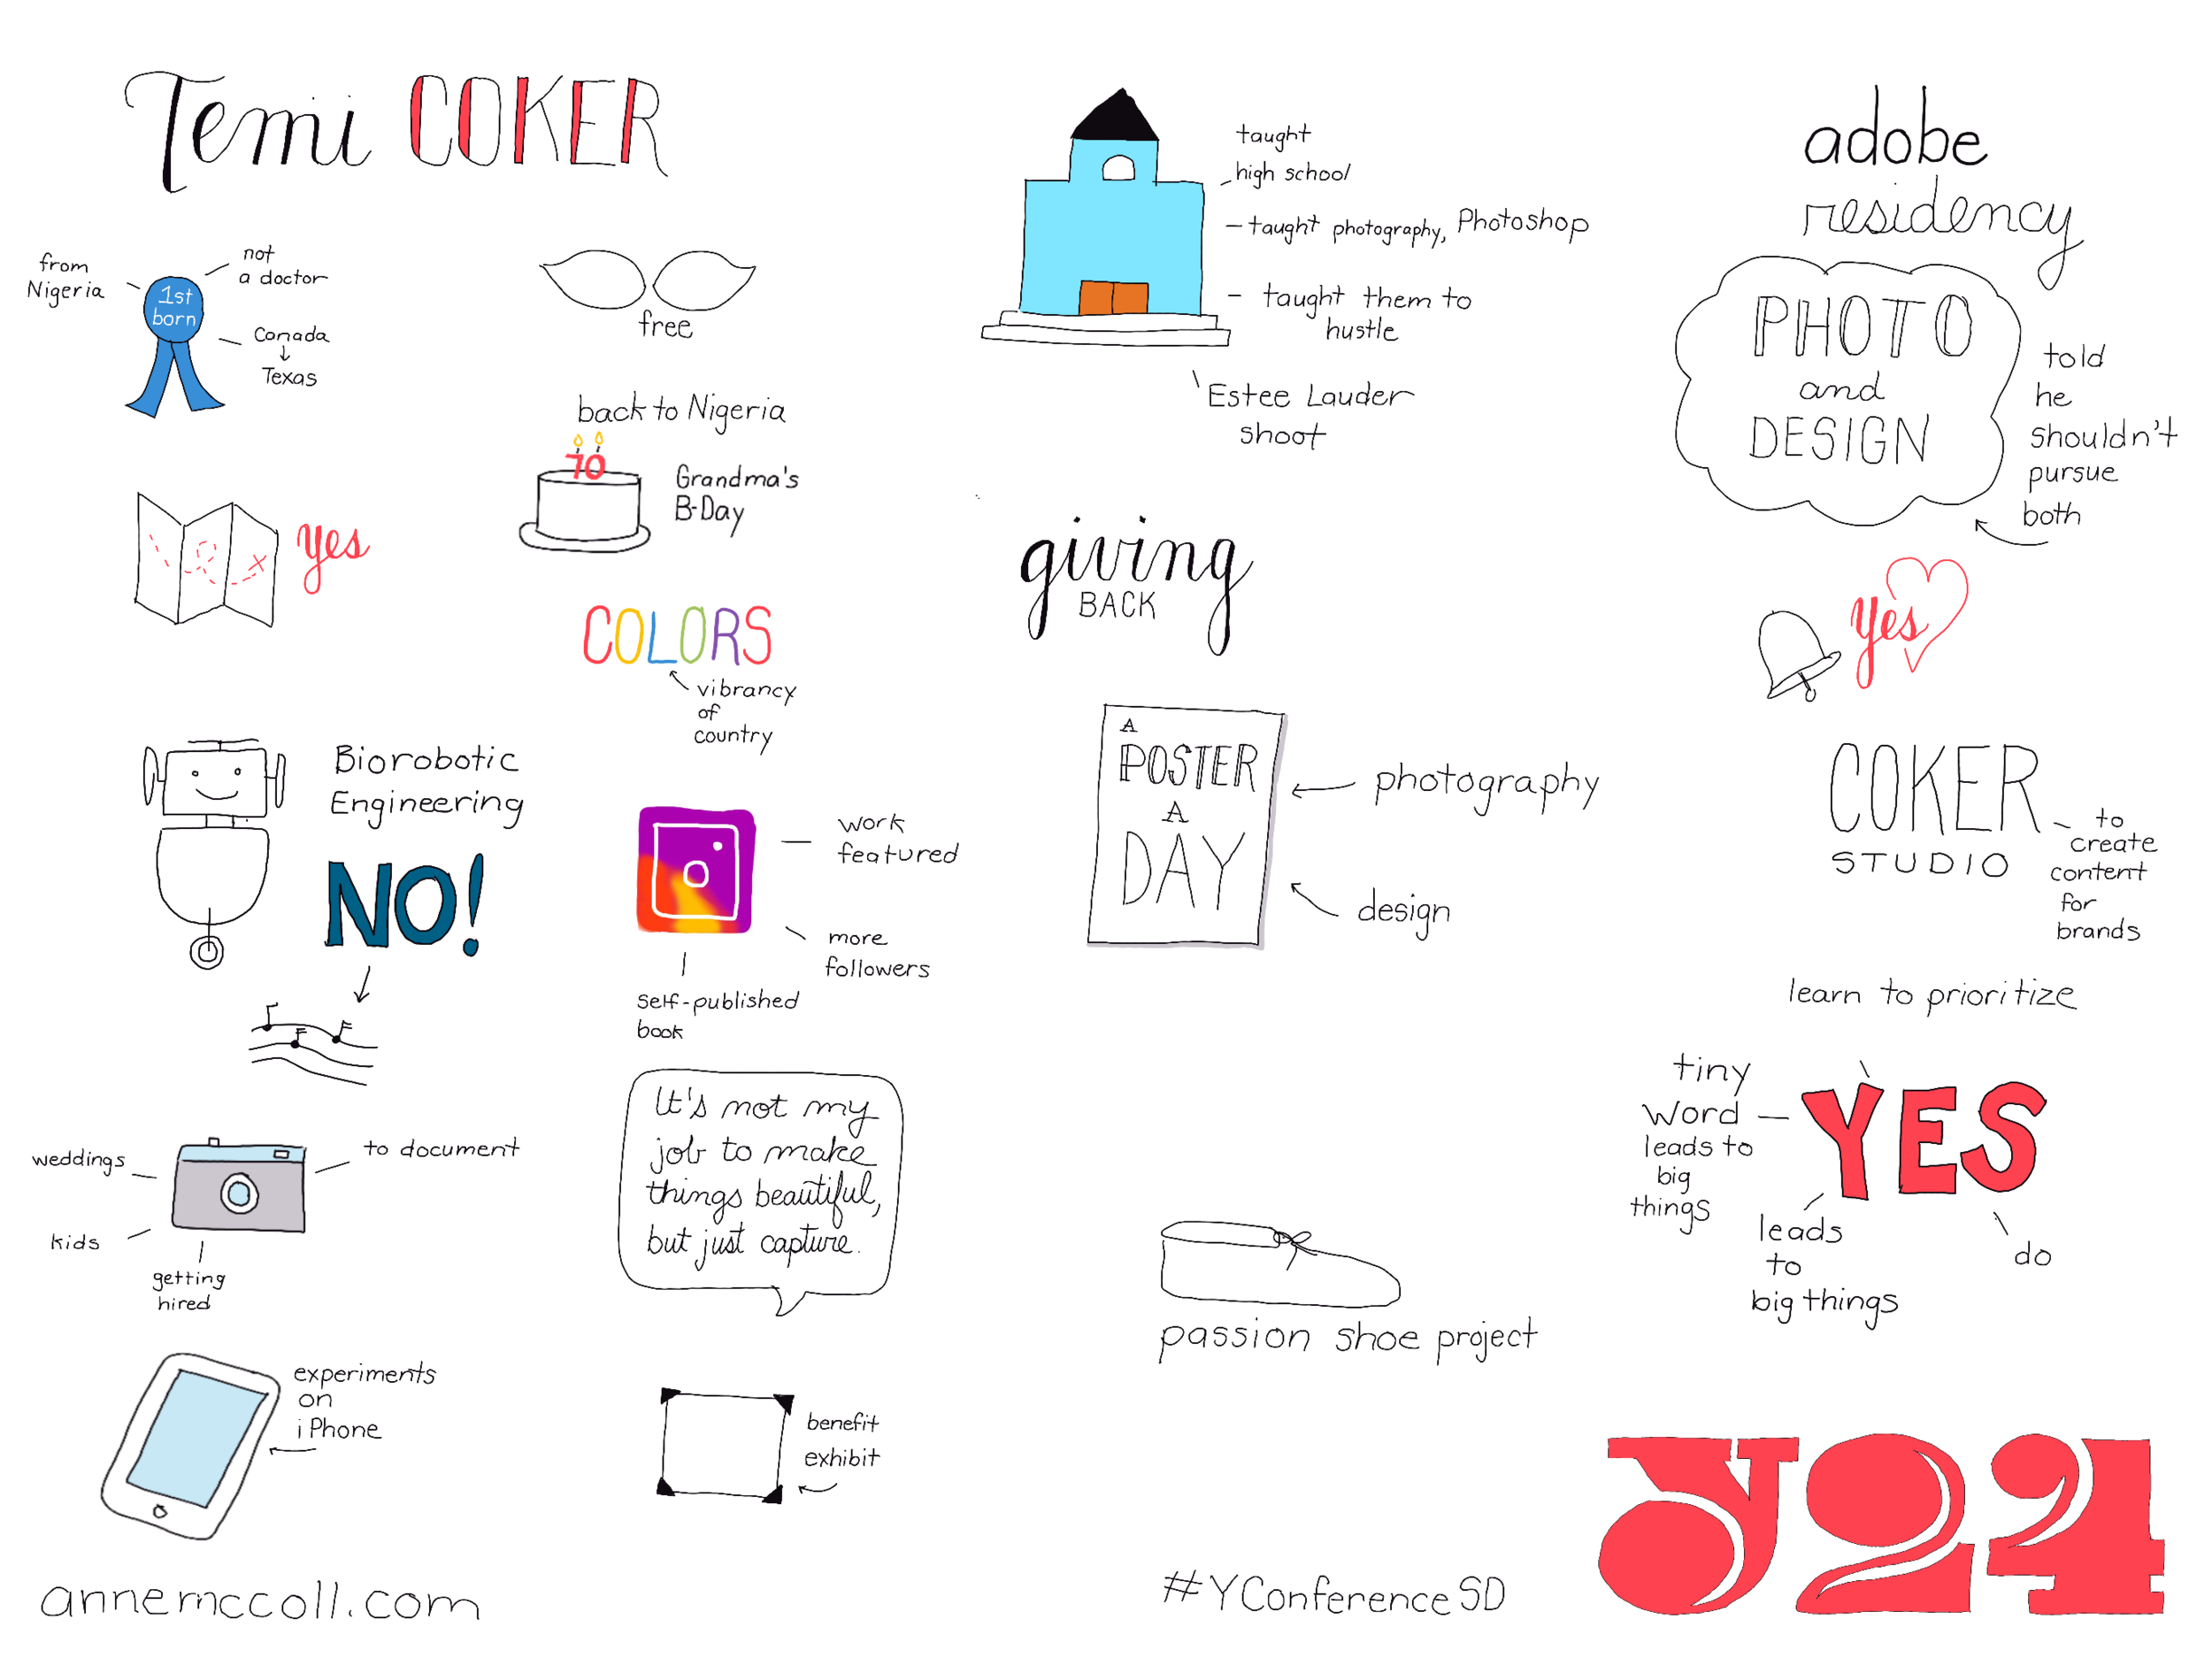 Temi COKER
from
Nigeria
1st
born
not
a doctor
Canada
Texas
yes
Biorobotic
Engineering
NO!
weddings
to document
kids
getting
hired
experiments
on
iPhone
annemccoll.com
free
back to Nigeria
70
Grandma's
B-Day
COLORS
vibrancy
of
country
work
featured
more
followers
self-published
book
It's not my
job to make
things beautiful,
but just capture.
benefit
exhibit
taught
high school
- taught photography, Photoshop
- taught them to
hustle
Estee Lauder
shoot
giving
BACK
A
POSTER
A
DAY
photography
design
passion shoe project
#YConferenceSD
adobe
residency
PHOTO
and
DESIGN
told
he
shouldn't
pursue
both
yes
COKER
STUDIO
to
create
content
for
brands
learn to prioritize
tiny
word
leads to
big
things
YES
leads
to
big things
do
Y24